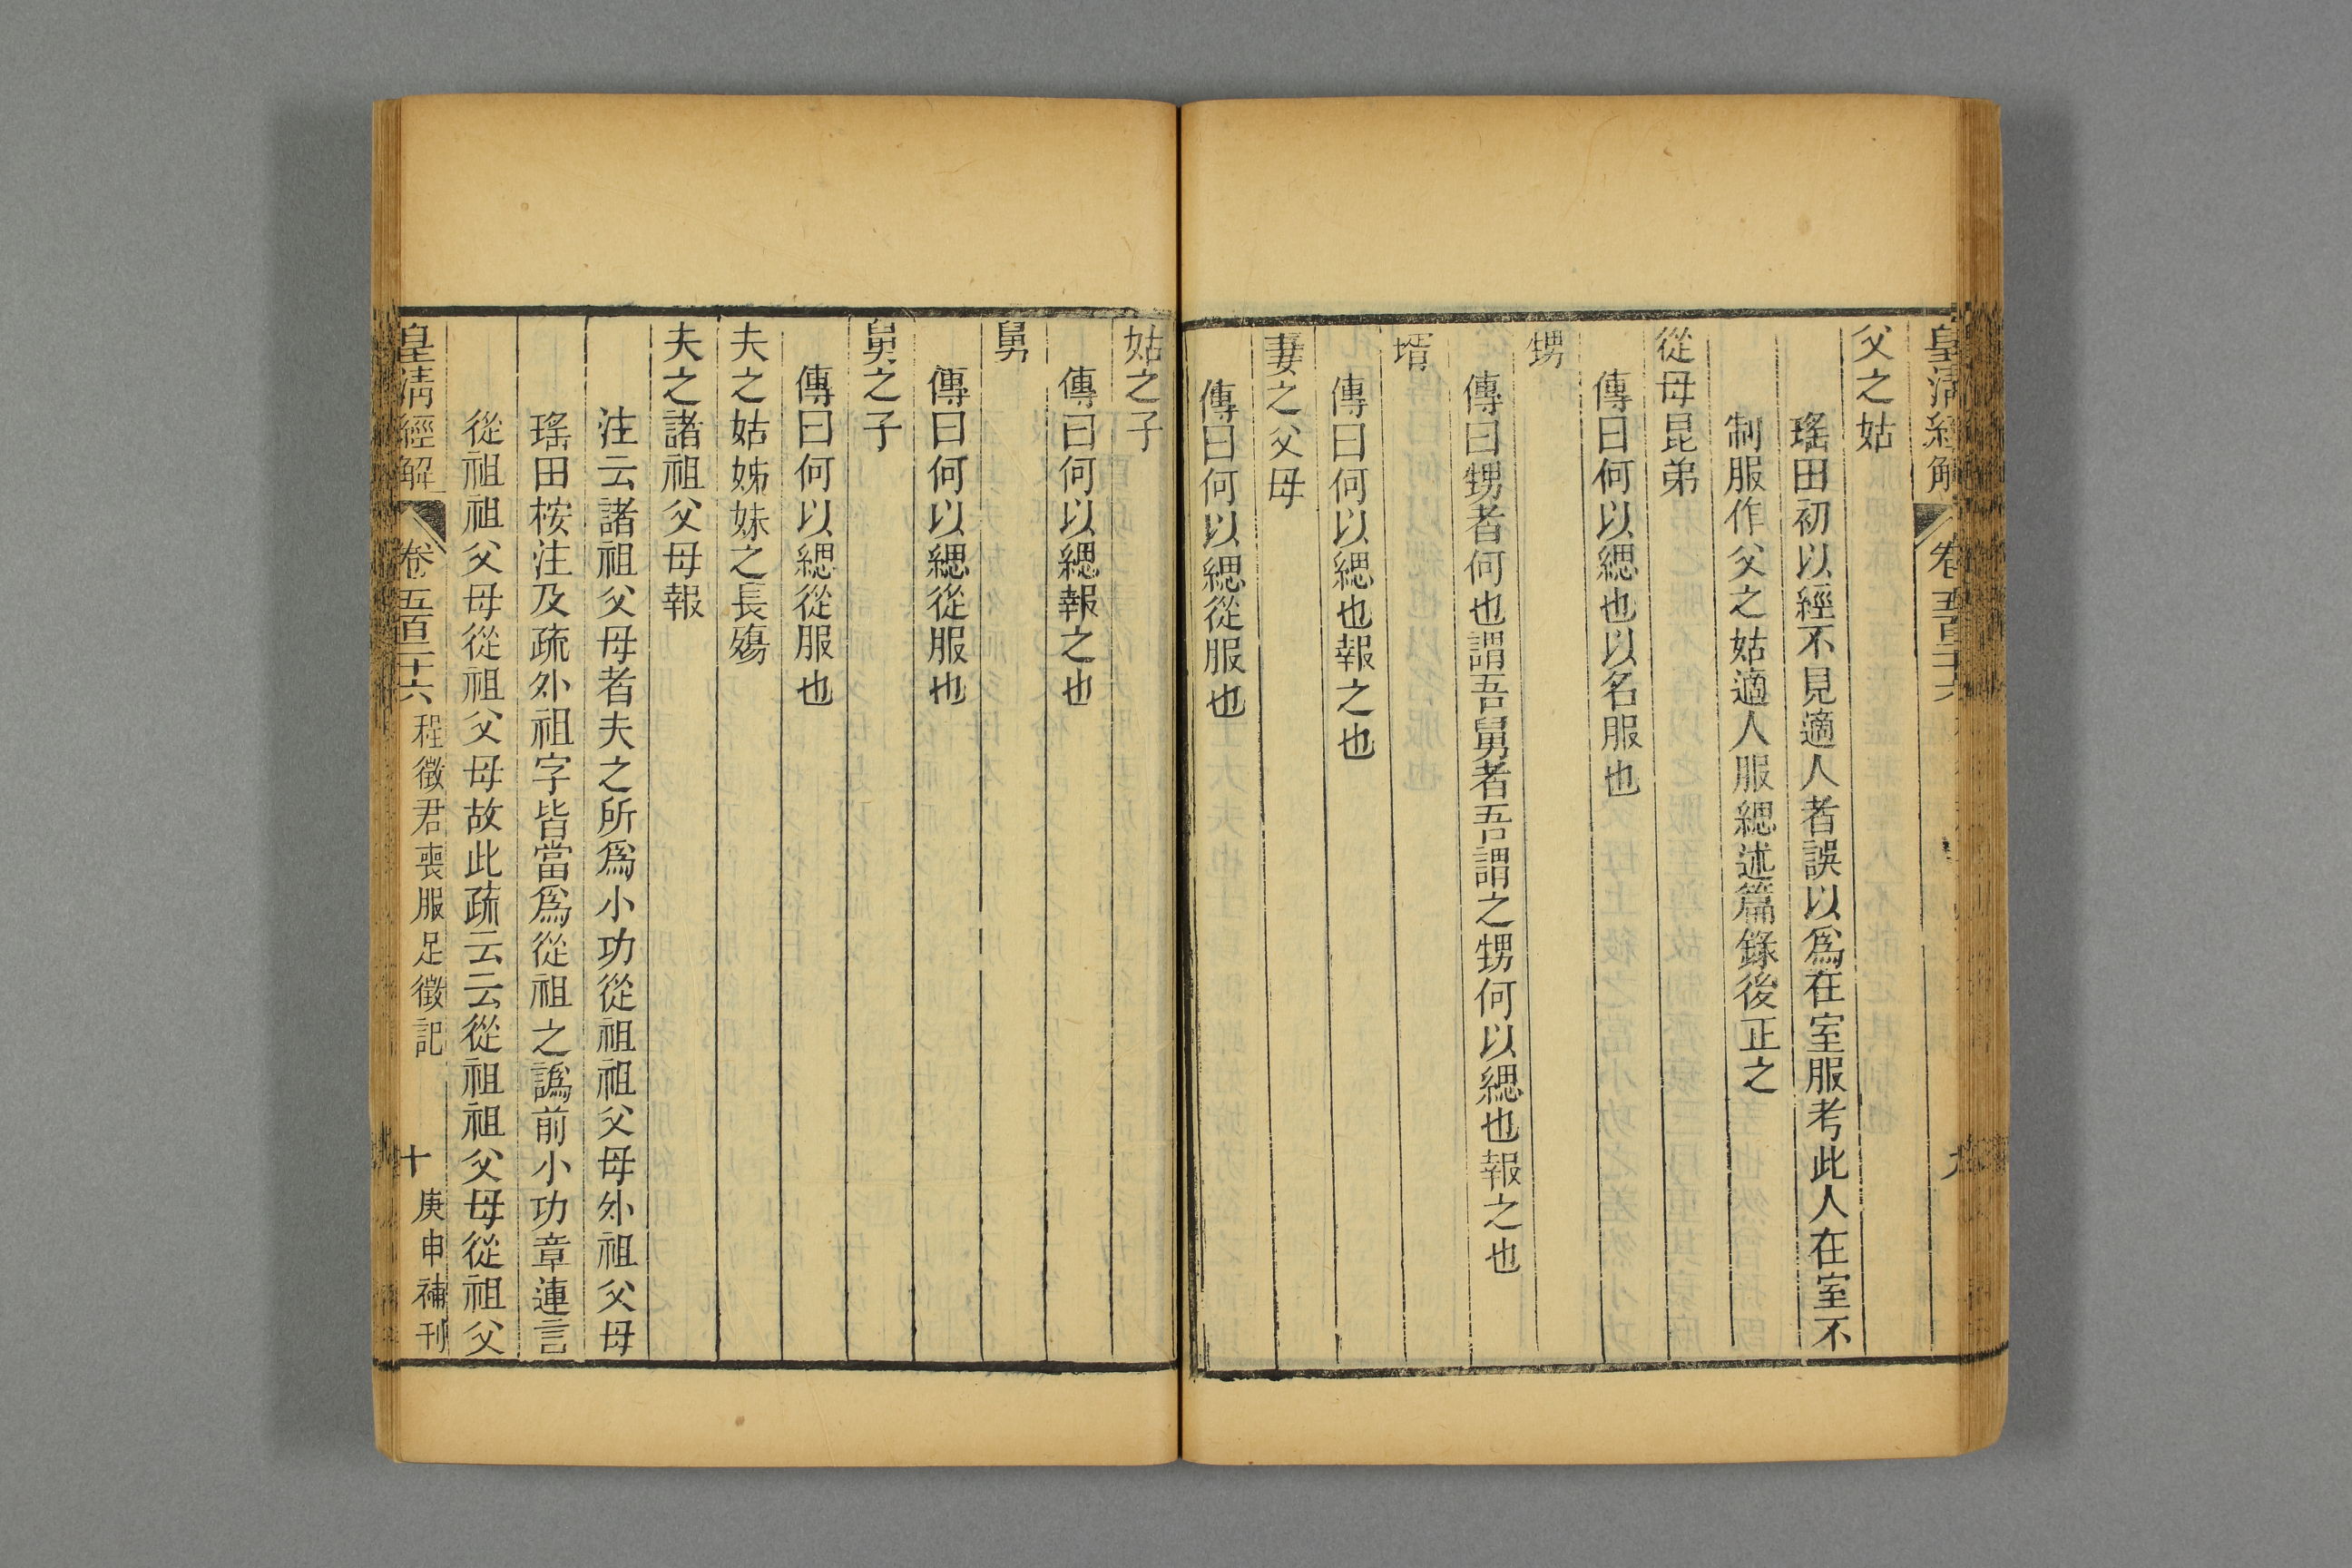 皇清經解
卷五百二十六
父之姑
瑤田初以經不見適人者誤以爲在室服考此人在室不
制服作父之姑適人服緦述篇錄後正之
從母昆弟
傳曰何以緦也以名服也
甥
傳曰甥者何也謂吾舅者吾謂之甥何以緦也報之也
壻
傳曰何以緦也報之也
妻之父母
傳曰何以緦從服也
姑之子
傳曰何以緦報之也
舅
傳曰何以緦從服也
舅之子
傳曰何以緦從服也
夫之姑姊妹之長殤
夫之諸祖父母報
注云諸祖父母者夫之所爲小功從祖祖父母外祖父母
瑤田桉注及疏外祖字皆當爲從祖之譌前小功章連言
從祖祖父母從祖父母故此疏云云從祖祖父母從祖父
皇清經解 卷五百二十六 程徵君喪服足徵記 十 庚申補刊